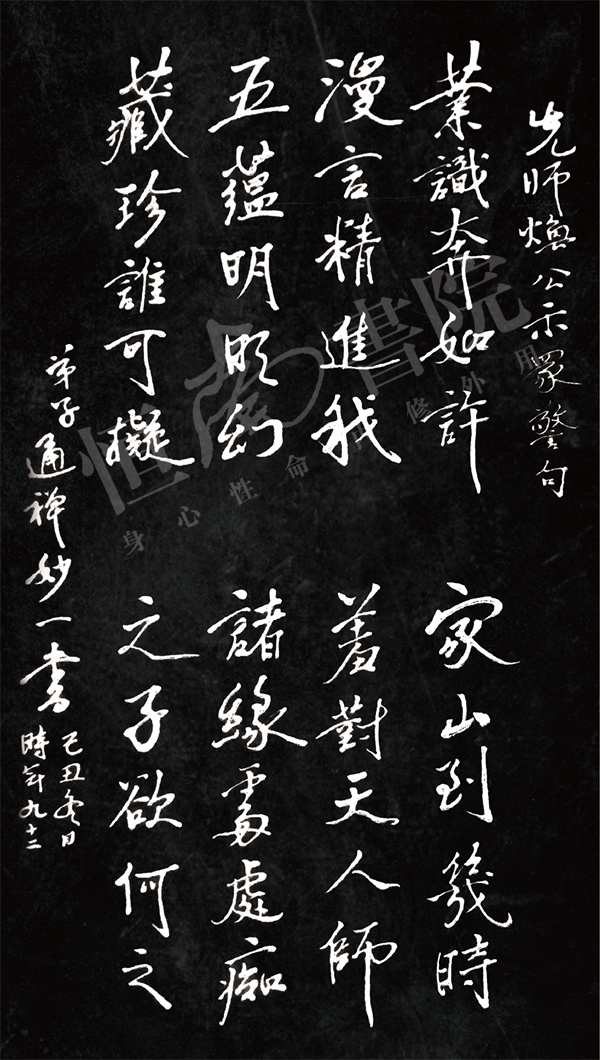 先师焕公示眾警句
業識奔如許
家山到幾時
漫言精進我
羞對天人師
五蘊明明幻
諸緣處處痴
藏珍誰可擬
之子欲何之
弟子通禅妙一書
己丑冬日
時年九十二
恒南書院
身心性命 修外用